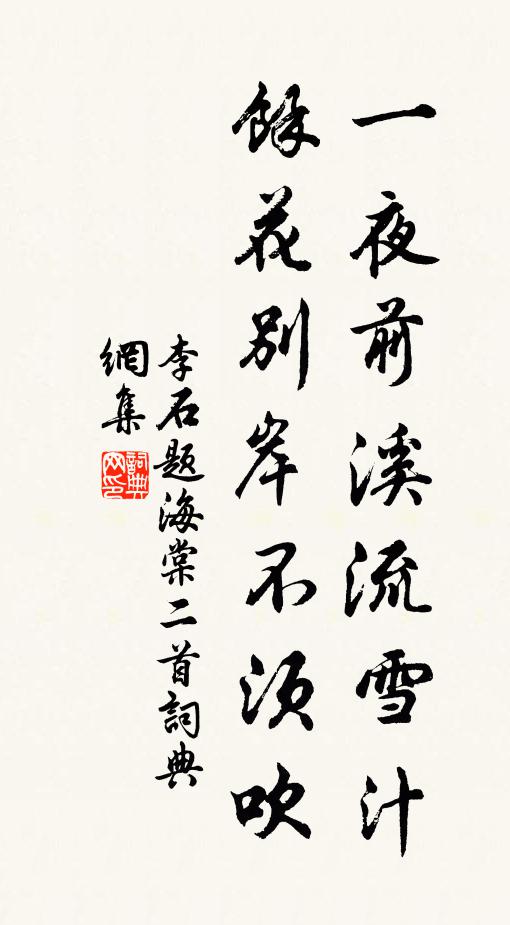 一夜前溪流雪汁
餘花別岸不須吹
李石題海棠二首詞典
網集
詞典
网印